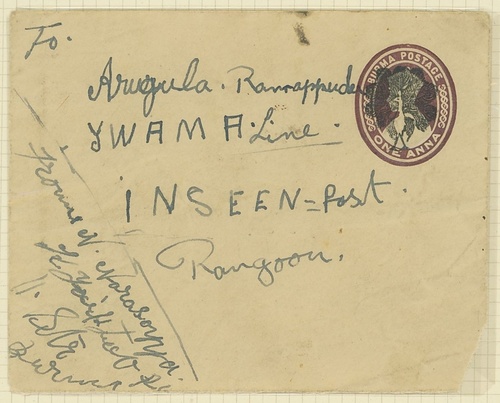 To.
Arugula. Ramappudu
YWAMA. Line.
INSEEN=Post.
Rangoon.
BURMA POSTAGE
ONE ANNA
From N. Narasayya.
Burma